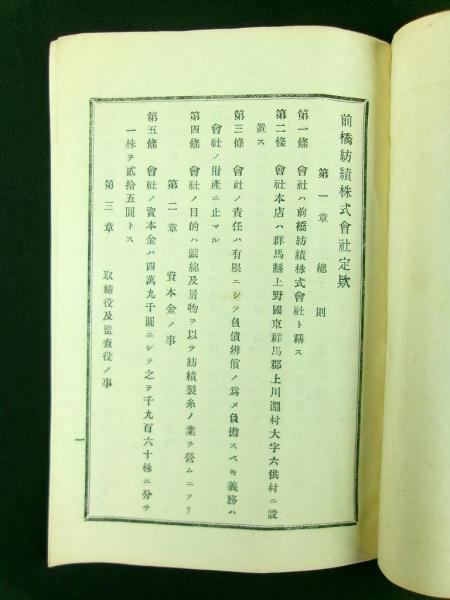 前橋紡績株式會社定欵
第一章　總則
第一條　會社ハ前橋紡績株式會社ト稱ス
第二條　會社本店ハ群馬縣上野國東群馬郡上川淵村大字六供村ニ設
置ス
第三條　會社ノ責任ハ有限ニシテ負債辨償ノ爲メ負擔スベキ義務ハ
會社ノ財產ニ止マル
第四條　會社ノ目的ハ繭綿及屑物ヲ以テ紡績製糸ノ業ヲ營ムニアリ
第二章　資本金ノ事
第五條　會社ノ資本金ハ四萬九千圓ニシテ之ヲ千九百六十株ニ分チ
一株ヲ貳拾五圓トス
第三章　取締役及監査役ノ事
一